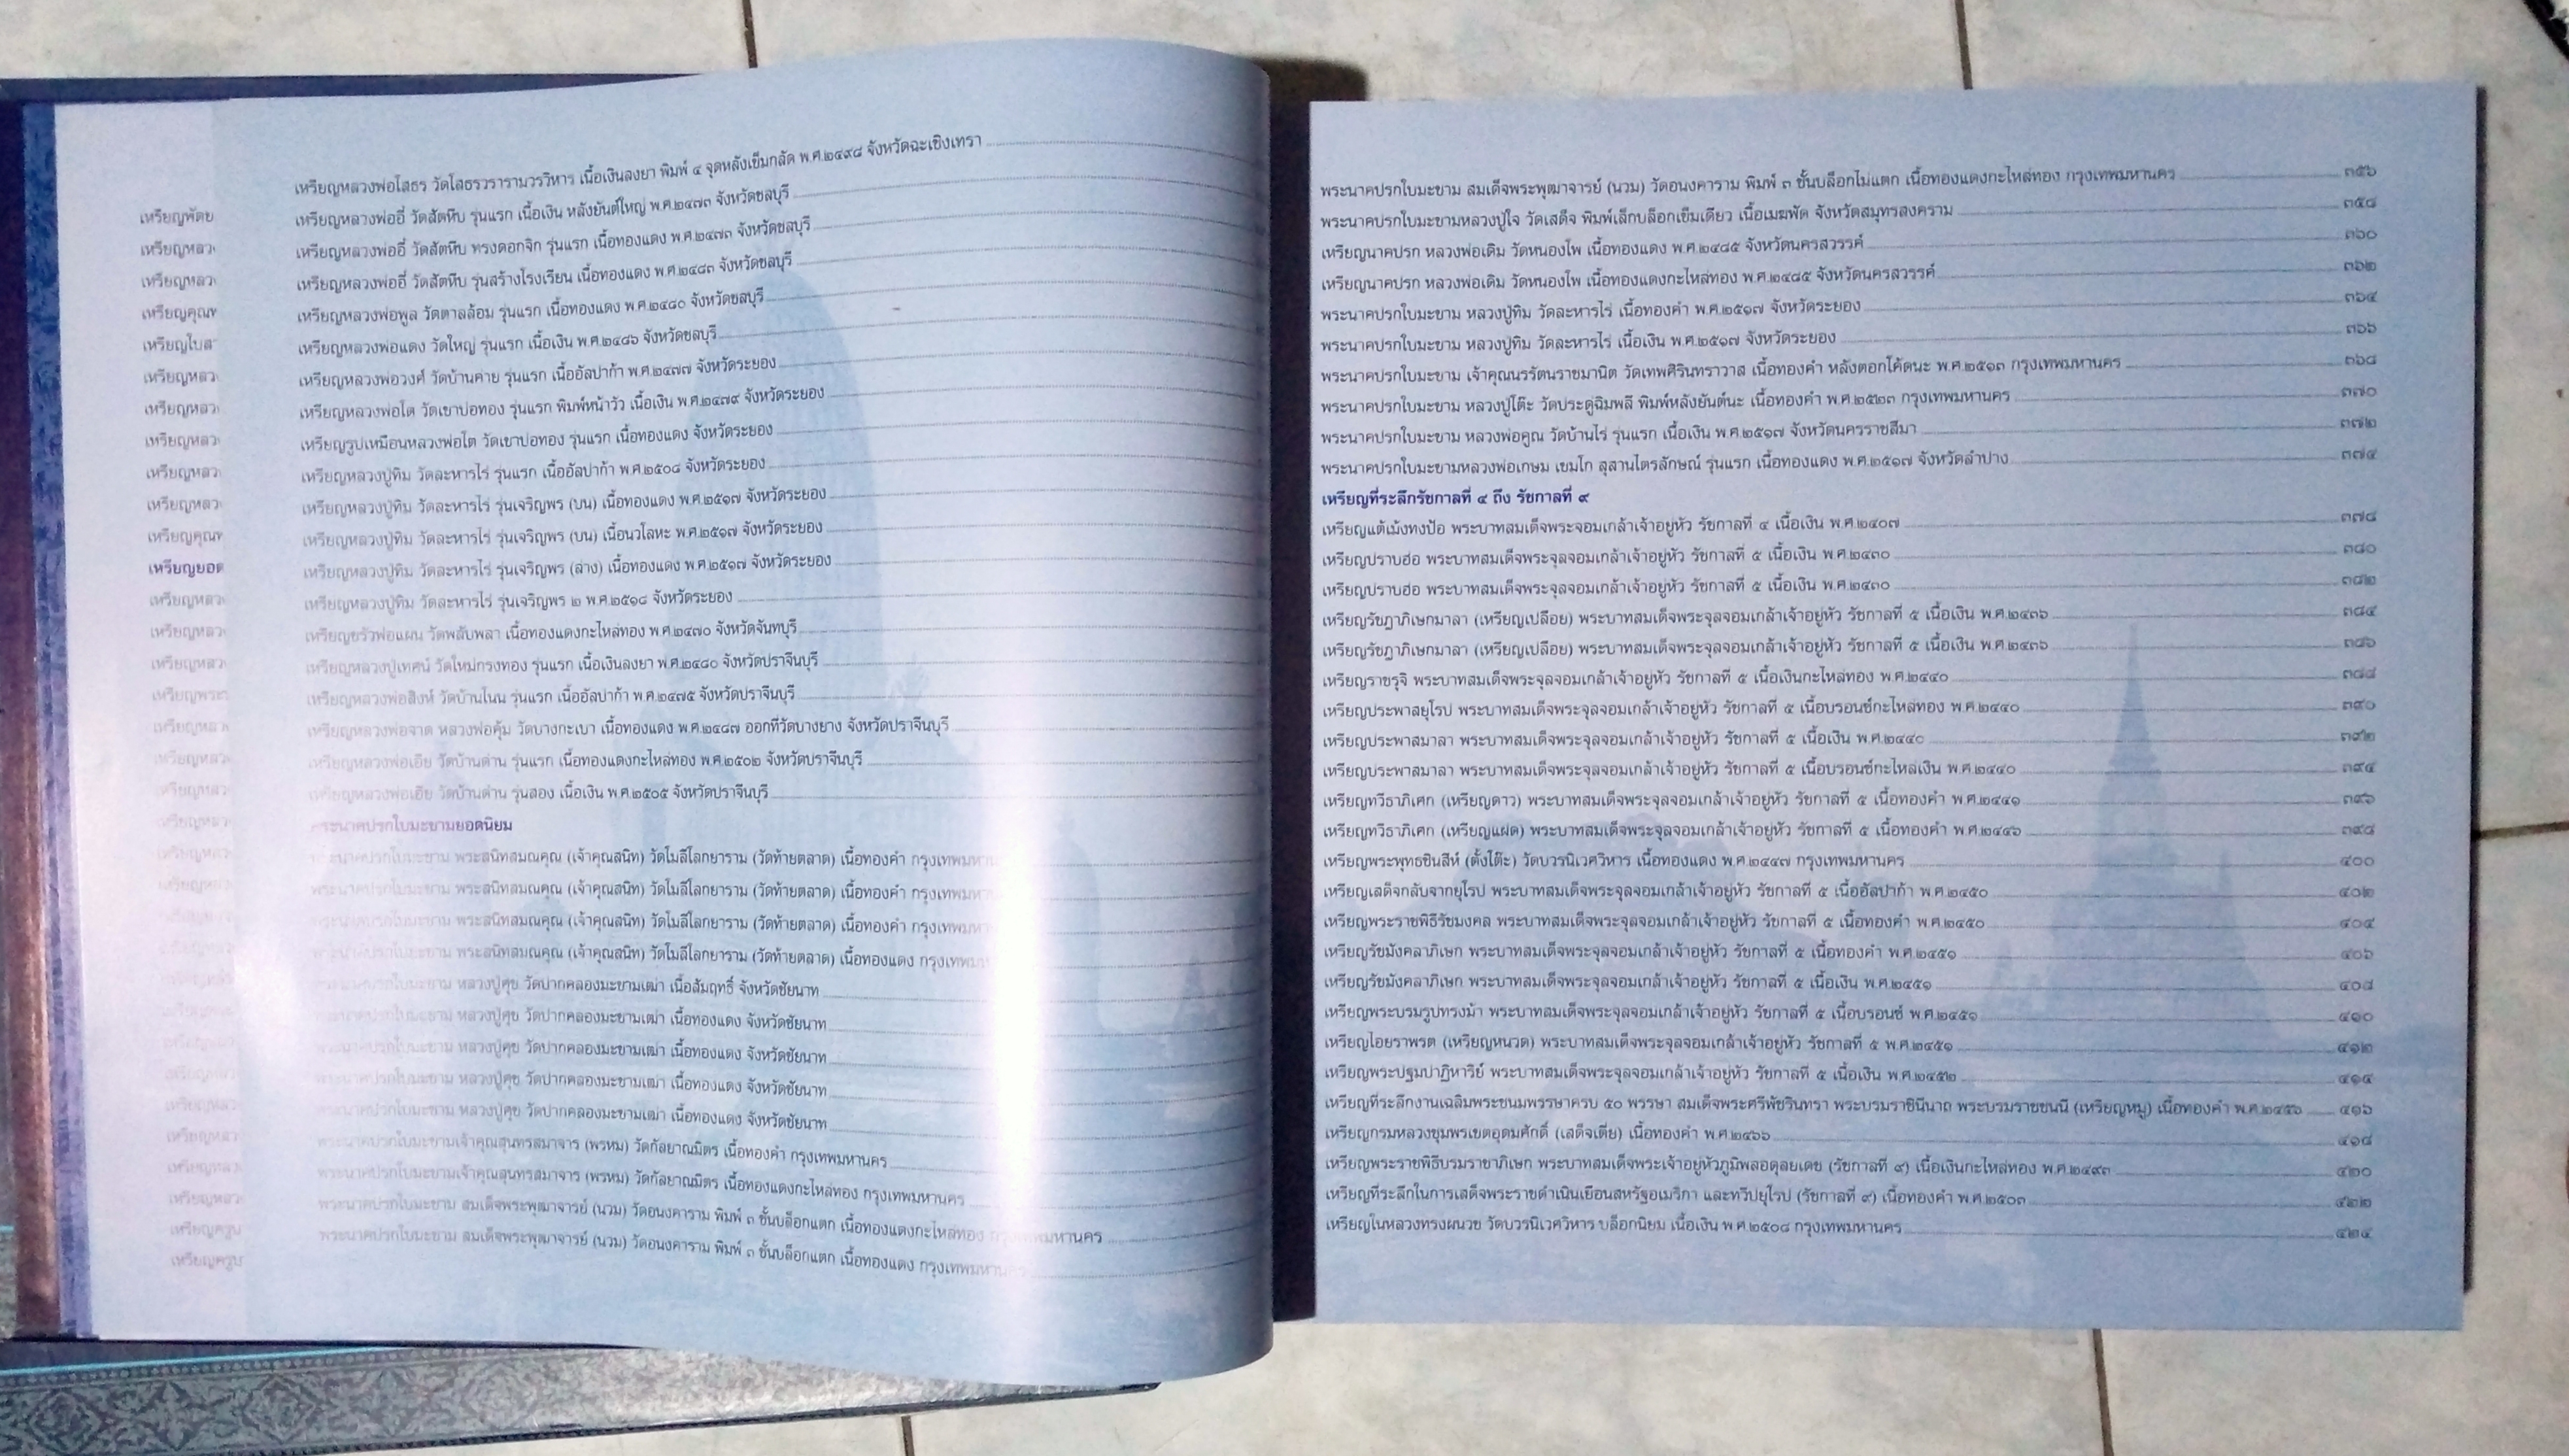 เหรียญพัดย
เหรียญหลว
เหรียญหลว
เหรียญคุณพ
เหรียญใบส
เหรียญหลว
เหรียญหลว
เหรียญหลว
เหรียญหลว
เหรียญหลว
เหรียญคุณพ
เหรียญยอด
เหรียญหลว
เหรียญหลว
เหรียญหลว
เหรียญพระ
เหรียญหลว
เหรียญหลว
เหรียญหลวงพ่อโสธร วัดโสธรวรารามวรวิหาร เนื้อเงินลงยา พิมพ์ ๔ จุดหลังเข็มกลัด พ.ศ.๒๔๙๘ จังหวัดฉะเชิงเทรา
เหรียญหลวงพ่ออี๋ วัดสัตหีบ รุ่นแรก เนื้อเงิน หลังยันต์ใหญ่ พ.ศ.๒๔๗๓ จังหวัดชลบุรี
เหรียญหลวงพ่ออี๋ วัดสัตหีบ ทรงดอกจิก รุ่นแรก เนื้อทองแดง พ.ศ.๒๔๗๓ จังหวัดชลบุรี
เหรียญหลวงพ่ออี๋ วัดสัตหีบ รุ่นสร้างโรงเรียน เนื้อทองแดง พ.ศ.๒๔๘๓ จังหวัดชลบุรี
เหรียญหลวงพ่อพูล วัดตาลล้อม รุ่นแรก เนื้อทองแดง พ.ศ.๒๔๘๐ จังหวัดชลบุรี
เหรียญหลวงพ่อแดง วัดใหญ่ รุ่นแรก เนื้อเงิน พ.ศ.๒๔๘๖ จังหวัดชลบุรี
เหรียญหลวงพ่อวงศ์ วัดบ้านค่าย รุ่นแรก เนื้ออัลปาก้า พ.ศ.๒๔๗๗ จังหวัดระยอง
เหรียญหลวงพ่อโต วัดเขาบ่อทอง รุ่นแรก พิมพ์หน้าวัว เนื้อเงิน พ.ศ.๒๔๗๙ จังหวัดระยอง
เหรียญรูปเหมือนหลวงพ่อโต วัดเขาบ่อทอง รุ่นแรก เนื้อทองแดง จังหวัดระยอง
เหรียญหลวงปู่ทิม วัดละหารไร่ รุ่นแรก เนื้ออัลปาก้า พ.ศ.๒๕๐๘ จังหวัดระยอง
เหรียญหลวงปู่ทิม วัดละหารไร่ รุ่นเจริญพร (บน) เนื้อทองแดง พ.ศ.๒๕๑๗ จังหวัดระยอง
เหรียญหลวงปู่ทิม วัดละหารไร่ รุ่นเจริญพร (บน) เนื้อนวโลหะ พ.ศ.๒๕๑๗ จังหวัดระยอง
เหรียญหลวงปู่ทิม วัดละหารไร่ รุ่นเจริญพร (ล่าง) เนื้อทองแดง พ.ศ.๒๕๑๗ จังหวัดระยอง
เหรียญหลวงปู่ทิม วัดละหารไร่ รุ่นเจริญพร ๒ พ.ศ.๒๕๑๘ จังหวัดระยอง
เหรียญขรัวพ่อแผน วัดพลับพลา เนื้อทองแดงกะไหล่ทอง พ.ศ.๒๔๗๐ จังหวัดจันทบุรี
เหรียญหลวงปู่เทศน์ วัดใหม่กรงทอง รุ่นแรก เนื้อเงินลงยา พ.ศ.๒๔๘๐ จังหวัดปราจีนบุรี
เหรียญหลวงพ่อสิงห์ วัดบ้านโนน รุ่นแรก เนื้ออัลปาก้า พ.ศ.๒๔๗๕ จังหวัดปราจีนบุรี
เหรียญหลวงพ่อจาด หลวงพ่อคุ้ม วัดบางกะเบา เนื้อทองแดง พ.ศ.๒๔๘๗ ออกที่วัดบางยาง จังหวัดปราจีนบุรี
เหรียญหลวงพ่อเอีย วัดบ้านด่าน รุ่นแรก เนื้อทองแดงกะไหล่ทอง พ.ศ.๒๕๐๒ จังหวัดปราจีนบุรี
เหรียญหลวงพ่อเอีย วัดบ้านด่าน รุ่นสอง เนื้อเงิน พ.ศ.๒๕๐๕ จังหวัดปราจีนบุรี
พระนาคปรกใบมะขามยอดนิยม
พระนาคปรกใบมะขาม พระสนิทสมณคุณ (เจ้าคุณสนิท) วัดโมลีโลกยาราม (วัดท้ายตลาด) เนื้อทองคำ กรุงเทพมหาน
พระนาคปรกใบมะขาม พระสนิทสมณคุณ (เจ้าคุณสนิท) วัดโมลีโลกยาราม (วัดท้ายตลาด) เนื้อทองคำ กรุงเทพมหาน
พระนาคปรกใบมะขาม พระสนิทสมณคุณ (เจ้าคุณสนิท) วัดโมลีโลกยาราม (วัดท้ายตลาด) เนื้อทองคำ กรุงเทพมหาน
พระนาคปรกใบมะขาม พระสนิทสมณคุณ (เจ้าคุณสนิท) วัดโมลีโลกยาราม (วัดท้ายตลาด) เนื้อทองแดง กรุงเทพมหาน
พระนาคปรกใบมะขาม หลวงปู่ศุข วัดปากคลองมะขามเฒ่า เนื้อสัมฤทธิ์ จังหวัดชัยนาท
พระนาคปรกใบมะขาม หลวงปู่ศุข วัดปากคลองมะขามเฒ่า เนื้อทองแดง จังหวัดชัยนาท
พระนาคปรกใบมะขาม หลวงปู่ศุข วัดปากคลองมะขามเฒ่า เนื้อทองแดง จังหวัดชัยนาท
พระนาคปรกใบมะขาม หลวงปู่ศุข วัดปากคลองมะขามเฒ่า เนื้อทองแดง จังหวัดชัยนาท
พระนาคปรกใบมะขาม หลวงปู่ศุข วัดปากคลองมะขามเฒ่า เนื้อทองแดง จังหวัดชัยนาท
พระนาคปรกใบมะขามเจ้าคุณสุนทรสมาจาร (พรหม) วัดกัลยาณมิตร เนื้อทองคำ กรุงเทพมหานคร
พระนาคปรกใบมะขามเจ้าคุณสุนทรสมาจาร (พรหม) วัดกัลยาณมิตร เนื้อทองแดงกะไหล่ทอง กรุงเทพมหานคร
พระนาคปรกใบมะขาม สมเด็จพระพุฒาจารย์ (นวม) วัดอนงคาราม พิมพ์ ๓ ชั้นบล็อกแตก เนื้อทองแดงกะไหล่ทอง กรุงเทพมหานคร
พระนาคปรกใบมะขาม สมเด็จพระพุฒาจารย์ (นวม) วัดอนงคาราม พิมพ์ ๓ ชั้นบล็อกแตก เนื้อทองแดง กรุงเทพมหานคร
พระนาคปรกใบมะขาม สมเด็จพระพุฒาจารย์ (นวม) วัดอนงคาราม พิมพ์ ๓ ชั้นบล็อกไม่แตก เนื้อทองแดงกะไหล่ทอง กรุงเทพมหานคร ๓๕๖
พระนาคปรกใบมะขามหลวงปู่ใจ วัดเสด็จ พิมพ์เล็กบล็อกเข็มเดียว เนื้อเมฆพัด จังหวัดสมุทรสงคราม ๓๕๘
เหรียญนาคปรก หลวงพ่อเดิม วัดหนองโพ เนื้อทองแดง พ.ศ.๒๔๘๕ จังหวัดนครสวรรค์ ๓๖๐
เหรียญนาคปรก หลวงพ่อเดิม วัดหนองโพ เนื้อทองแดงกะไหล่ทอง พ.ศ.๒๔๘๕ จังหวัดนครสวรรค์ ๓๖๒
พระนาคปรกใบมะขาม หลวงปู่ทิม วัดละหารไร่ เนื้อทองคำ พ.ศ.๒๕๑๗ จังหวัดระยอง ๓๖๔
พระนาคปรกใบมะขาม หลวงปู่ทิม วัดละหารไร่ เนื้อเงิน พ.ศ.๒๕๑๗ จังหวัดระยอง ๓๖๖
พระนาคปรกใบมะขาม เจ้าคุณนรรัตนราชมานิต วัดเทพศิรินทราวาส เนื้อทองคำ หลังตอกโค้ดนะ พ.ศ.๒๕๑๓ กรุงเทพมหานคร ๓๖๘
พระนาคปรกใบมะขาม หลวงปู่โต๊ะ วัดประดู่ฉิมพลี พิมพ์หลังยันต์นะ เนื้อทองคำ พ.ศ.๒๕๒๓ กรุงเทพมหานคร ๓๗๐
พระนาคปรกใบมะขาม หลวงพ่อคูณ วัดบ้านไร่ รุ่นแรก เนื้อเงิน พ.ศ.๒๕๑๗ จังหวัดนครราชสีมา ๓๗๒
พระนาคปรกใบมะขามหลวงพ่อเกษม เขมโก สุสานไตรลักษณ์ รุ่นแรก เนื้อทองแดง พ.ศ.๒๕๑๗ จังหวัดลำปาง ๓๗๔
เหรียญที่ระลึกรัชกาลที่ ๔ ถึง รัชกาลที่ ๙
เหรียญแต้เม้งทงป้อ พระบาทสมเด็จพระจอมเกล้าเจ้าอยู่หัว รัชกาลที่ ๔ เนื้อเงิน พ.ศ.๒๔๐๗ ๓๗๘
เหรียญปราบฮ่อ พระบาทสมเด็จพระจุลจอมเกล้าเจ้าอยู่หัว รัชกาลที่ ๕ เนื้อเงิน พ.ศ.๒๔๓๐ ๓๘๐
เหรียญปราบฮ่อ พระบาทสมเด็จพระจุลจอมเกล้าเจ้าอยู่หัว รัชกาลที่ ๕ เนื้อเงิน พ.ศ.๒๔๓๐ ๓๘๒
เหรียญรัชฎาภิเษกมาลา (เหรียญเปลือย) พระบาทสมเด็จพระจุลจอมเกล้าเจ้าอยู่หัว รัชกาลที่ ๕ เนื้อเงิน พ.ศ.๒๔๓๖ ๓๘๔
เหรียญรัชฎาภิเษกมาลา (เหรียญเปลือย) พระบาทสมเด็จพระจุลจอมเกล้าเจ้าอยู่หัว รัชกาลที่ ๕ เนื้อเงิน พ.ศ.๒๔๓๖ ๓๘๖
เหรียญราชรุจิ พระบาทสมเด็จพระจุลจอมเกล้าเจ้าอยู่หัว รัชกาลที่ ๕ เนื้อเงินกะไหล่ทอง พ.ศ.๒๔๔๐ ๓๘๘
เหรียญประพาสยุโรป พระบาทสมเด็จพระจุลจอมเกล้าเจ้าอยู่หัว รัชกาลที่ ๕ เนื้อบรอนซ์กะไหล่ทอง พ.ศ.๒๔๔๐ ๓๙๐
เหรียญประพาสมาลา พระบาทสมเด็จพระจุลจอมเกล้าเจ้าอยู่หัว รัชกาลที่ ๕ เนื้อเงิน พ.ศ.๒๔๔๐ ๓๙๒
เหรียญประพาสมาลา พระบาทสมเด็จพระจุลจอมเกล้าเจ้าอยู่หัว รัชกาลที่ ๕ เนื้อบรอนซ์กะไหล่เงิน พ.ศ.๒๔๔๐ ๓๙๔
เหรียญทวีธาภิเศก (เหรียญดาว) พระบาทสมเด็จพระจุลจอมเกล้าเจ้าอยู่หัว รัชกาลที่ ๕ เนื้อทองคำ พ.ศ.๒๔๔๑ ๓๙๖
เหรียญทวีธาภิเศก (เหรียญแฝด) พระบาทสมเด็จพระจุลจอมเกล้าเจ้าอยู่หัว รัชกาลที่ ๕ เนื้อทองคำ พ.ศ.๒๔๔๖ ๓๙๘
เหรียญพระพุทธชินสีห์ (ตั้งโต๊ะ) วัดบวรนิเวศวิหาร เนื้อทองแดง พ.ศ.๒๔๔๗ กรุงเทพมหานคร ๔๐๐
เหรียญเสด็จกลับจากยุโรป พระบาทสมเด็จพระจุลจอมเกล้าเจ้าอยู่หัว รัชกาลที่ ๕ เนื้ออัลปาก้า พ.ศ.๒๔๕๐ ๔๐๒
เหรียญพระราชพิธีรัชมงคล พระบาทสมเด็จพระจุลจอมเกล้าเจ้าอยู่หัว รัชกาลที่ ๕ เนื้อทองคำ พ.ศ.๒๔๕๐ ๔๐๔
เหรียญรัชมังคลาภิเษก พระบาทสมเด็จพระจุลจอมเกล้าเจ้าอยู่หัว รัชกาลที่ ๕ เนื้อทองคำ พ.ศ.๒๔๕๑ ๔๐๖
เหรียญรัชมังคลาภิเษก พระบาทสมเด็จพระจุลจอมเกล้าเจ้าอยู่หัว รัชกาลที่ ๕ เนื้อเงิน พ.ศ.๒๔๕๑ ๔๐๘
เหรียญพระบรมรูปทรงม้า พระบาทสมเด็จพระจุลจอมเกล้าเจ้าอยู่หัว รัชกาลที่ ๕ เนื้อบรอนซ์ พ.ศ.๒๔๕๑ ๔๑๐
เหรียญไอยราพรต (เหรียญหนวด) พระบาทสมเด็จพระจุลจอมเกล้าเจ้าอยู่หัว รัชกาลที่ ๕ พ.ศ.๒๔๕๑ ๔๑๒
เหรียญพระปฐมปาฏิหาริย์ พระบาทสมเด็จพระจุลจอมเกล้าเจ้าอยู่หัว รัชกาลที่ ๕ เนื้อเงิน พ.ศ.๒๔๕๒ ๔๑๔
เหรียญที่ระลึกงานเฉลิมพระชนมพรรษาครบ ๕๐ พรรษา สมเด็จพระศรีพัชรินทรา พระบรมราชินีนาถ พระบรมราชชนนี (เหรียญหมู) เนื้อทองคำ พ.ศ.๒๔๕๖ ๔๑๖
เหรียญกรมหลวงชุมพรเขตอุดมศักดิ์ (เสด็จเตี่ย) เนื้อทองคำ พ.ศ.๒๔๖๖ ๔๑๘
เหรียญพระราชพิธีบรมราชาภิเษก พระบาทสมเด็จพระเจ้าอยู่หัวภูมิพลอดุลยเดช (รัชกาลที่ ๙) เนื้อเงินกะไหล่ทอง พ.ศ.๒๔๙๓ ๔๒๐
เหรียญที่ระลึกในการเสด็จพระราชดำเนินเยือนสหรัฐอเมริกา และทวีปยุโรป (รัชกาลที่ ๙) เนื้อทองคำ พ.ศ.๒๕๐๓ ๔๒๒
เหรียญในหลวงทรงผนวช วัดบวรนิเวศวิหาร บล็อกนิยม เนื้อเงิน พ.ศ.๒๕๐๘ กรุงเทพมหานคร ๔๒๔